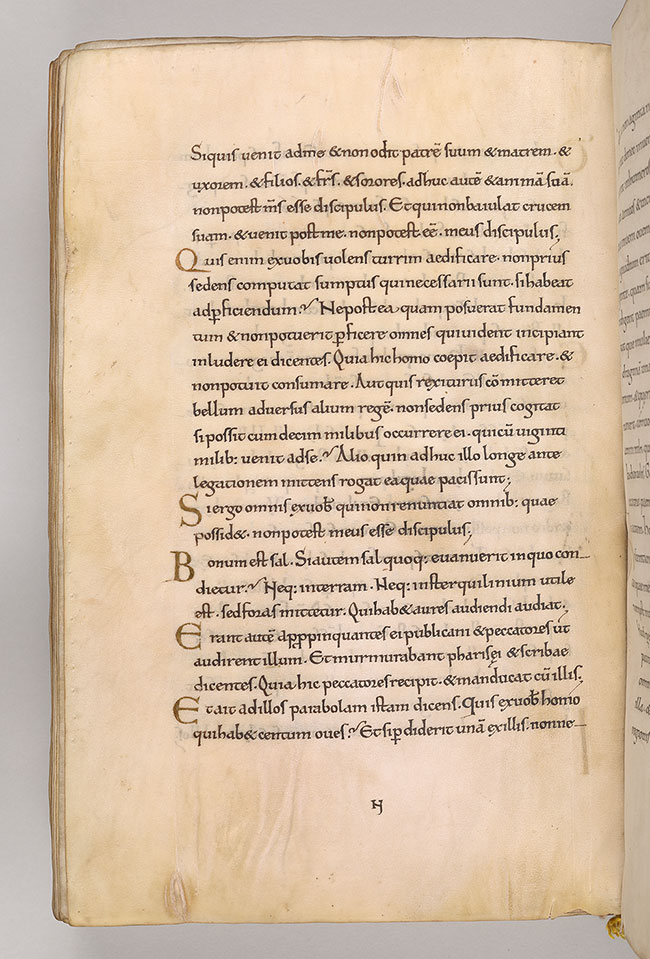 Siquis uenit adme & non odit patrē suum & matrem . &
uxorem . & filios . & frs̄ . & sorores . adhuc autē & animā suā .
non potest m̄s esse discipulus . Et qui non baiulat crucem
suam . & uenit post me . non potest eē . meus discipulus ;
Quis enim ex uobis uolens turrim aedificare . non prius
sedens computat sumptus qui necessarii sunt . si habeat
ad ꝑficiendum ? Ne postea quam posuerat fundamen
tum & non potuerit ꝑficere omnes qui uident incipiant
inludere ei dicentes . Quia hic homo coepit aedificare . &
non potuit consumare . Aut quis rex iturus cōmitteret
bellum aduersus alium regē . non sedens prius cogitat
si possit cum decim milibus occurrere ei . qui cū uiginti
milib: uenit ad se ? Alio quin adhuc illo longe ante
legationem mittens rogat ea quae pacis sunt ;
Si ergo omnis ex uob̄ qui non renuntiat omnib: quae
possid& . non potest meus esse discipulus ;
Bonum est sal . Si autem sal quoq: euanuerit in quo con
dietur ? Neq: in terram . Neq: in sterquilinium utile
est . sed foras mittetur . Qui hab& aures audiendi audiat ;
Erant autē apꝓpinquantes ei publicani & peccatores ut
audirent illum . Et murmurabant pharisęi & scribae
dicentes . Quia hic peccatores recipit . & manducat cū illis ;
Et ait ad illos parabolam istam dicens . Quis ex uob̄ homo
qui hab& centum oues ? Et si ꝑdiderit unā ex illis . nonne